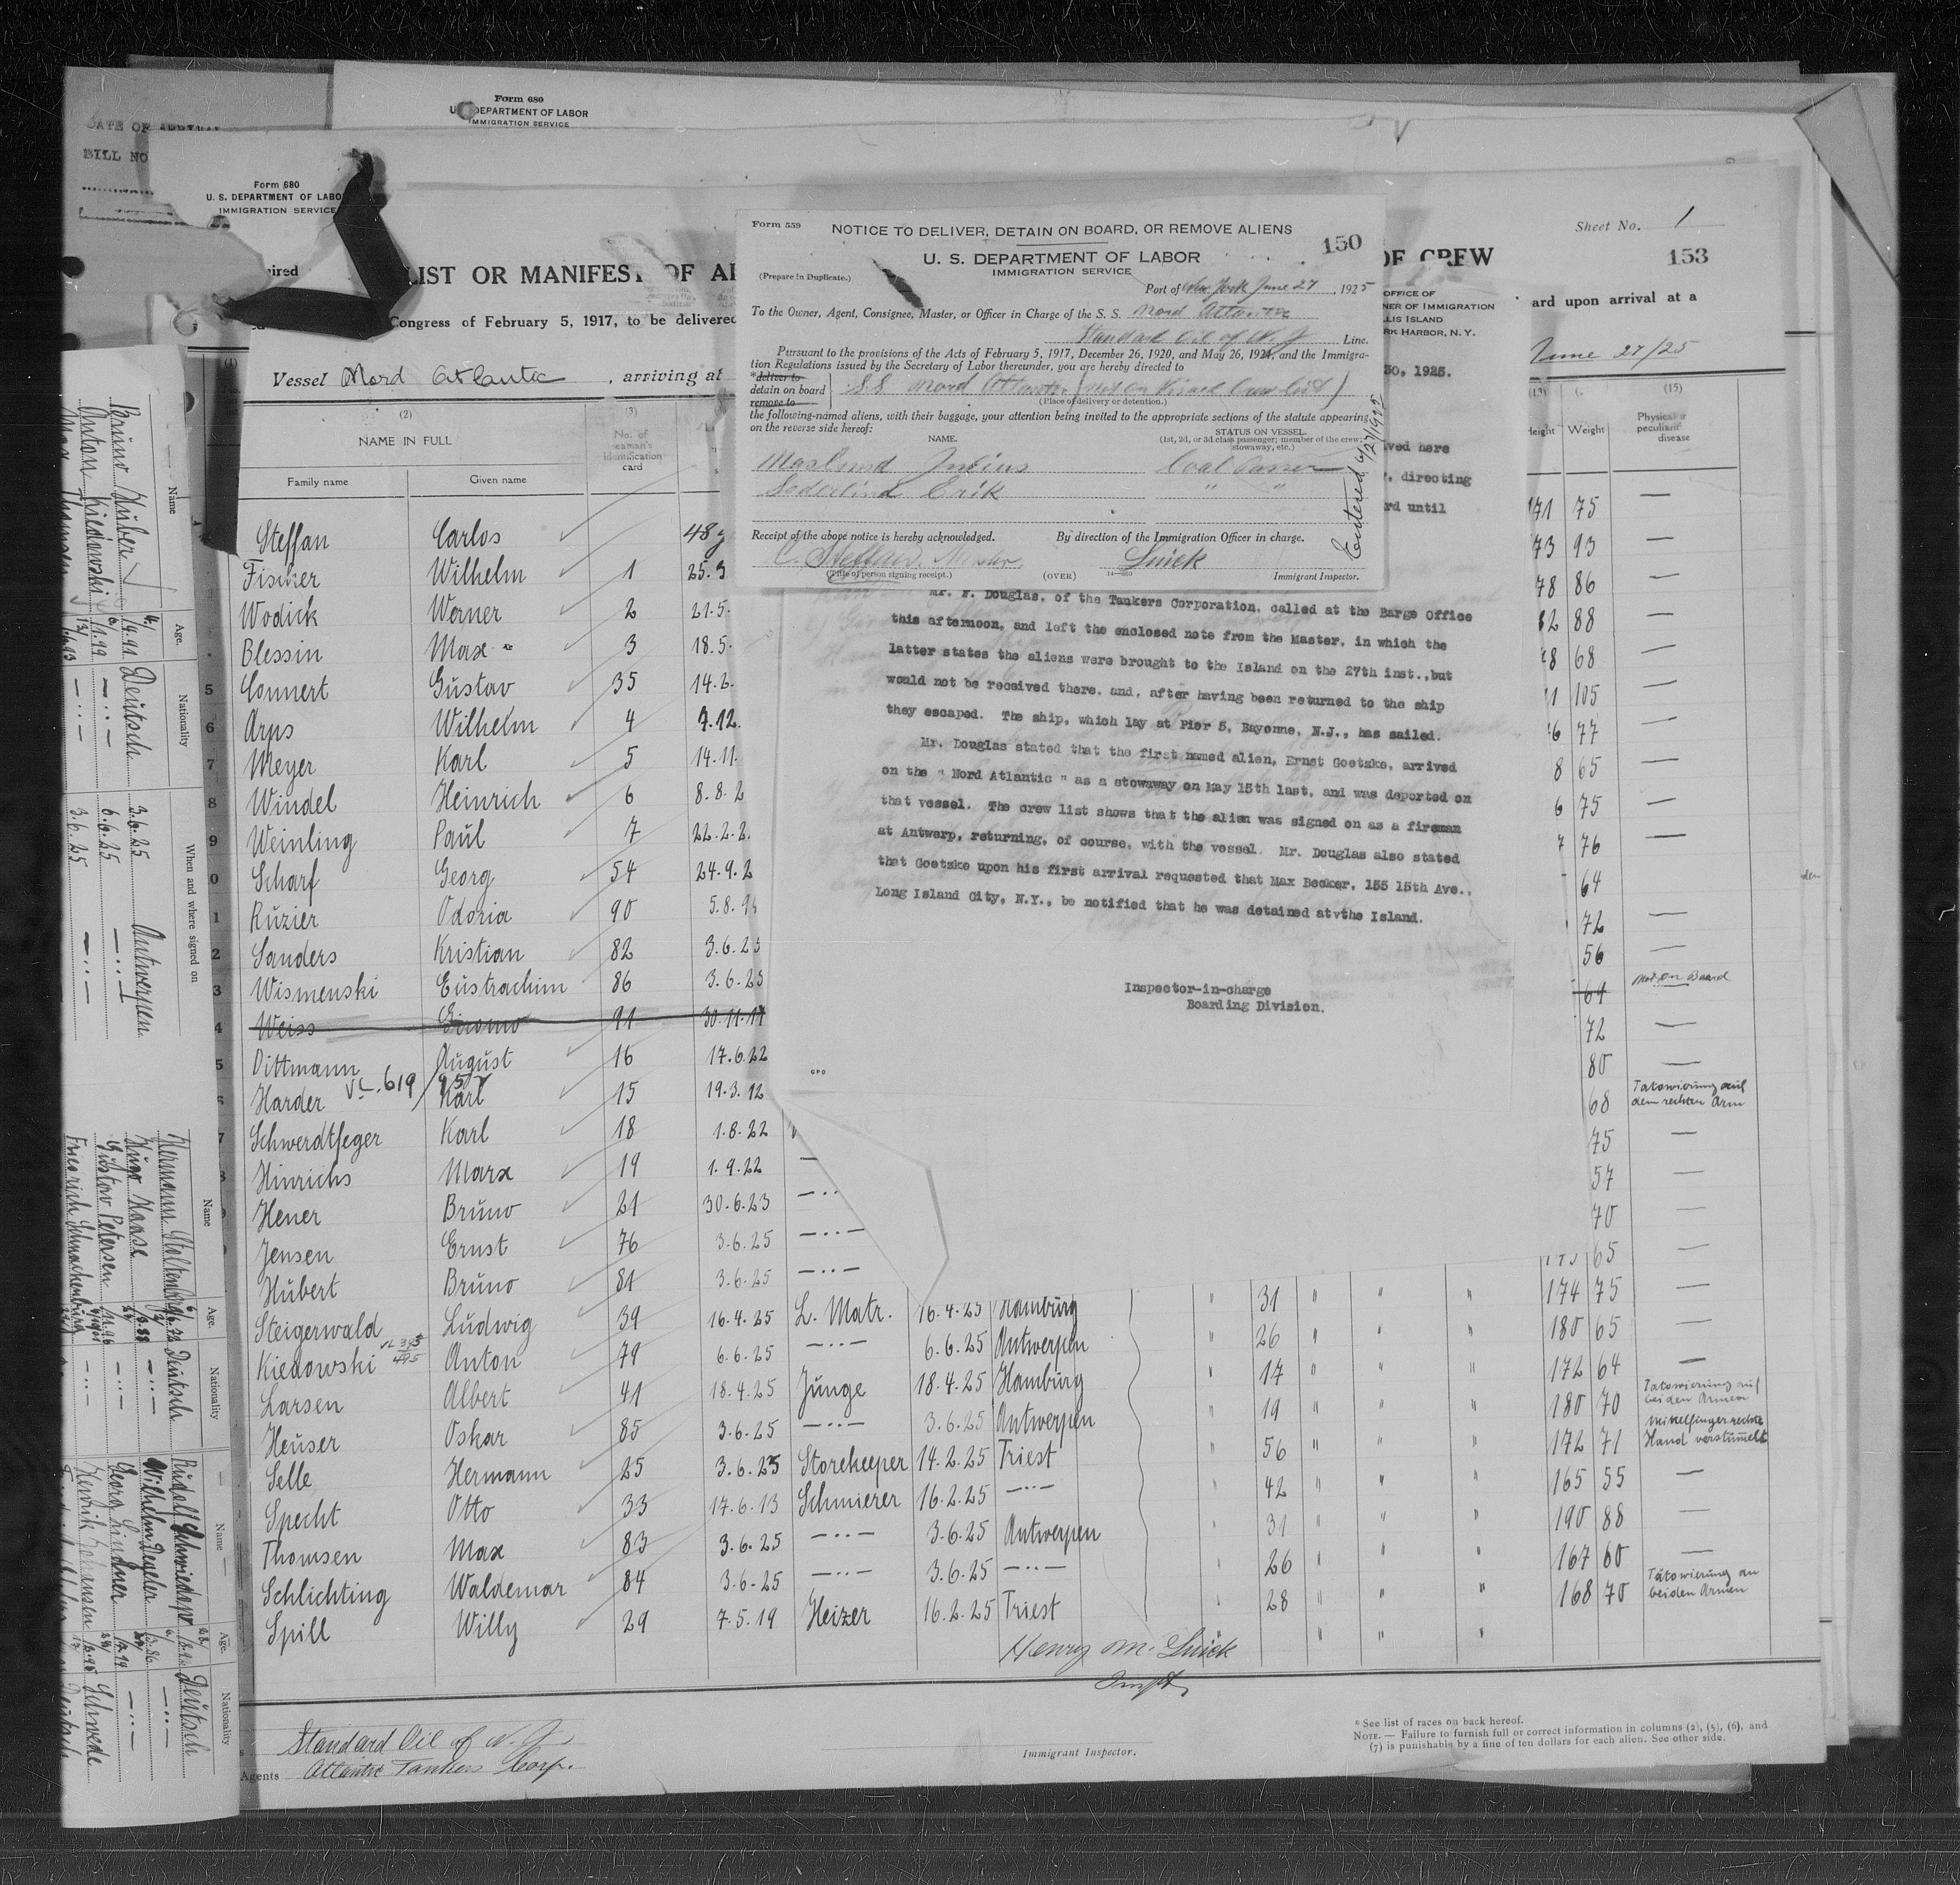 Form 680
U. S. DEPARTMENT OF LABOR
IMMIGRATION SERVICE
DATE OF ARRIVAL
BILL NO
Form 680
U. S. DEPARTMENT OF LABO
IMMIGRATION SERVICE
Sheet No. 1
153
LIST OR MANIFEST OF AL
OF CREW
Congress of February 5, 1917, to be delivered
ard upon arrival at a
OFFICE OF
NER OF IMMIGRATION
LIS ISLAND
RK HARBOR, N. Y.
Vessel Nord Atlantic , arriving at
June 27/25
30, 1925.
Form 559
NOTICE TO DELIVER, DETAIN ON BOARD, OR REMOVE ALIENS
150
U. S. DEPARTMENT OF LABOR
IMMIGRATION SERVICE
(Prepare in Duplicate.)
Port of New York June 27, 1925
To the Owner, Agent, Consignee, Master, or Officer in Charge of the S. S. Nord Atlantic
Standard Oil of N. J Line.
Pursuant to the provisions of the Acts of February 5, 1917, December 26, 1920, and May 26, 1924, and the Immigra-
tion Regulations issued by the Secretary of Labor thereunder, you are hereby directed to
*deliver to
detain on board
remove to
S.S Nord Atlantic (not on Visaed Crew List)
(Place of delivery or detention.)
the following-named aliens, with their baggage, your attention being invited to the appropriate sections of the statute appearing
on the reverse side hereof:
NAME.
STATUS ON VESSEL.
(1st, 2d, or 3d class passenger; member of the crew;
stowaway, etc.)
Julius Coal Passer
Sederlind Erik " "
Entered 6/27/1925
Receipt of the above notice is hereby acknowledged.
By direction of the Immigration Officer in charge.
C. Steffan, Master
Quick
(Title of person signing receipt.)
(OVER)
Immigrant Inspector.
ved here
, directing
rd until
Mr. F. Douglas, of the Tankers Corporation, called at the Barge Office
this afternoon, and left the enclosed note from the Master, in which the
latter states the aliens were brought to the Island on the 27th inst.,but
would not be received there, and, after having been returned to the ship
they escaped. The ship, which lay at Pier 5, Bayonne, N.J., has sailed.
Mr. Douglas stated that the first named alien, Ernst Goetzke, arrived
on the " Nord Atlantic " as a stowaway on May 15th last, and was deported on
that vessel. The crew list shows that the alien was signed on as a fireman
at Antwerp, returning, of course, with the vessel. Mr. Douglas also stated
that Goetzke upon his first arrival requested that Max Becker, 155 15th Ave.,
Long Island City, N.Y., be notified that he was detained atvthe Island.
Inspector-in-charge
Boarding Division.
GPO
(2) (3) (13) (15)
NAME IN FULL
No. of seaman's identification card
Height Weight
Physical peculiarit disease
Family name Given name
Steffan Carlos 48 y 171 75 —
Fischer Wilhelm 1 25.9 73 93 —
Wodick Werner 2 21.5. 78 86 —
Blessin Max 3 18.5. 82 88 —
5 Connert Gustav 35 14.2. 68 —
6 Arps Wilhelm 4 9.12. 105 —
7 Meyer Karl 5 14.11. 77 —
8 Windel Heinrich 6 8.8.2 8 65 —
9 Weinling Paul 7 22.2.2. 6 75 —
0 Scharf Georg 54 24.9.2 7 76 —
1 Ruzier Odoria 90 5.8.94 64
2 Sanders Kristian 82 3.6.25 72 —
3 Wismenski Eustrachim 86 3.6.25 56 —
4 Weiss 91 30.11.11 61 not on Board
5 Dittmann August 16 17.6.22 72 —
6 Harder VL.619/95 Karl 15 19.3.12 80 —
7 Schwerdtfeger Karl 18 1.8.22 68 Tatowierung auf dem rechten Arm
Hinrichs Marx 19 1.9.22 — 75 —
Hener Bruno 21 30.6.23 —··— 57 —
Jensen Ernst 76 3.6.25 —··— 70 —
Hubert Bruno 81 3.6.25 —··— 65 —
Steigerwald Ludwig 39 16.4.25 L. Matr. 16.4.25 Hamburg " 31 " " " 174 75 —
Kiedowski Anton 79 6.6.25 —··— 6.6.25 Antwerpen " 26 " " " 180 65 —
Larsen Albert 41 18.4.25 Junge 18.4.25 Hamburg " 17 " " " 172 64 —
Heuser Oskar 85 3.6.25 —··— 3.6.25 Antwerpen " 19 " " " 180 70 Tatowierung auf beiden Armen
Selle Hermann 25 3.6.25 Storekeeper 14.2.25 Triest " 56 " " " 172 71 Mittelfinger rechte Hand verstümmelt
Specht Otto 33 17.6.13 Schmierer 16.2.25 —··— " 42 " " " 165 55 —
Thomsen Max 83 3.6.25 —··— 3.6.25 Antwerpen " 31 " " " 190 88 —
Schlichting Waldemar 84 3.6.25 —··— 3.6.25 —··— " 26 " " " 167 60 —
Spill Willy 29 7.5.19 Heizer 16.2.25 Triest " 28 " " " 168 70 Tätowierung an beiden Armen
Henry M. Quick
Inspt,
Standard Oil of N. J,
Agents Atlantic Tankers Corp.
Immigrant Inspector.
* See list of races on back hereof.
NOTE.— Failure to furnish full or correct information in columns (2), (5), (6), and
(7) is punishable by a fine of ten dollars for each alien. See other side.
Name Age. Nationality When and where signed on
Bruno Huber Deutsch 3.6.25 Antwerpen
Anton Kiedowski —··— 6.6.25 —··—
Max Thomsen —··— 3.6.25 —··—
Name Age. Nationality
Hermann Deutsch
Hugo Haase —··—
Gustav Petersen —··—
Friedrich
Name Age. Nationality
Rudolf Deutsch
Wilhelm Degeler —··—
Georg Lindner —··—
Henrik Johansson Schwede